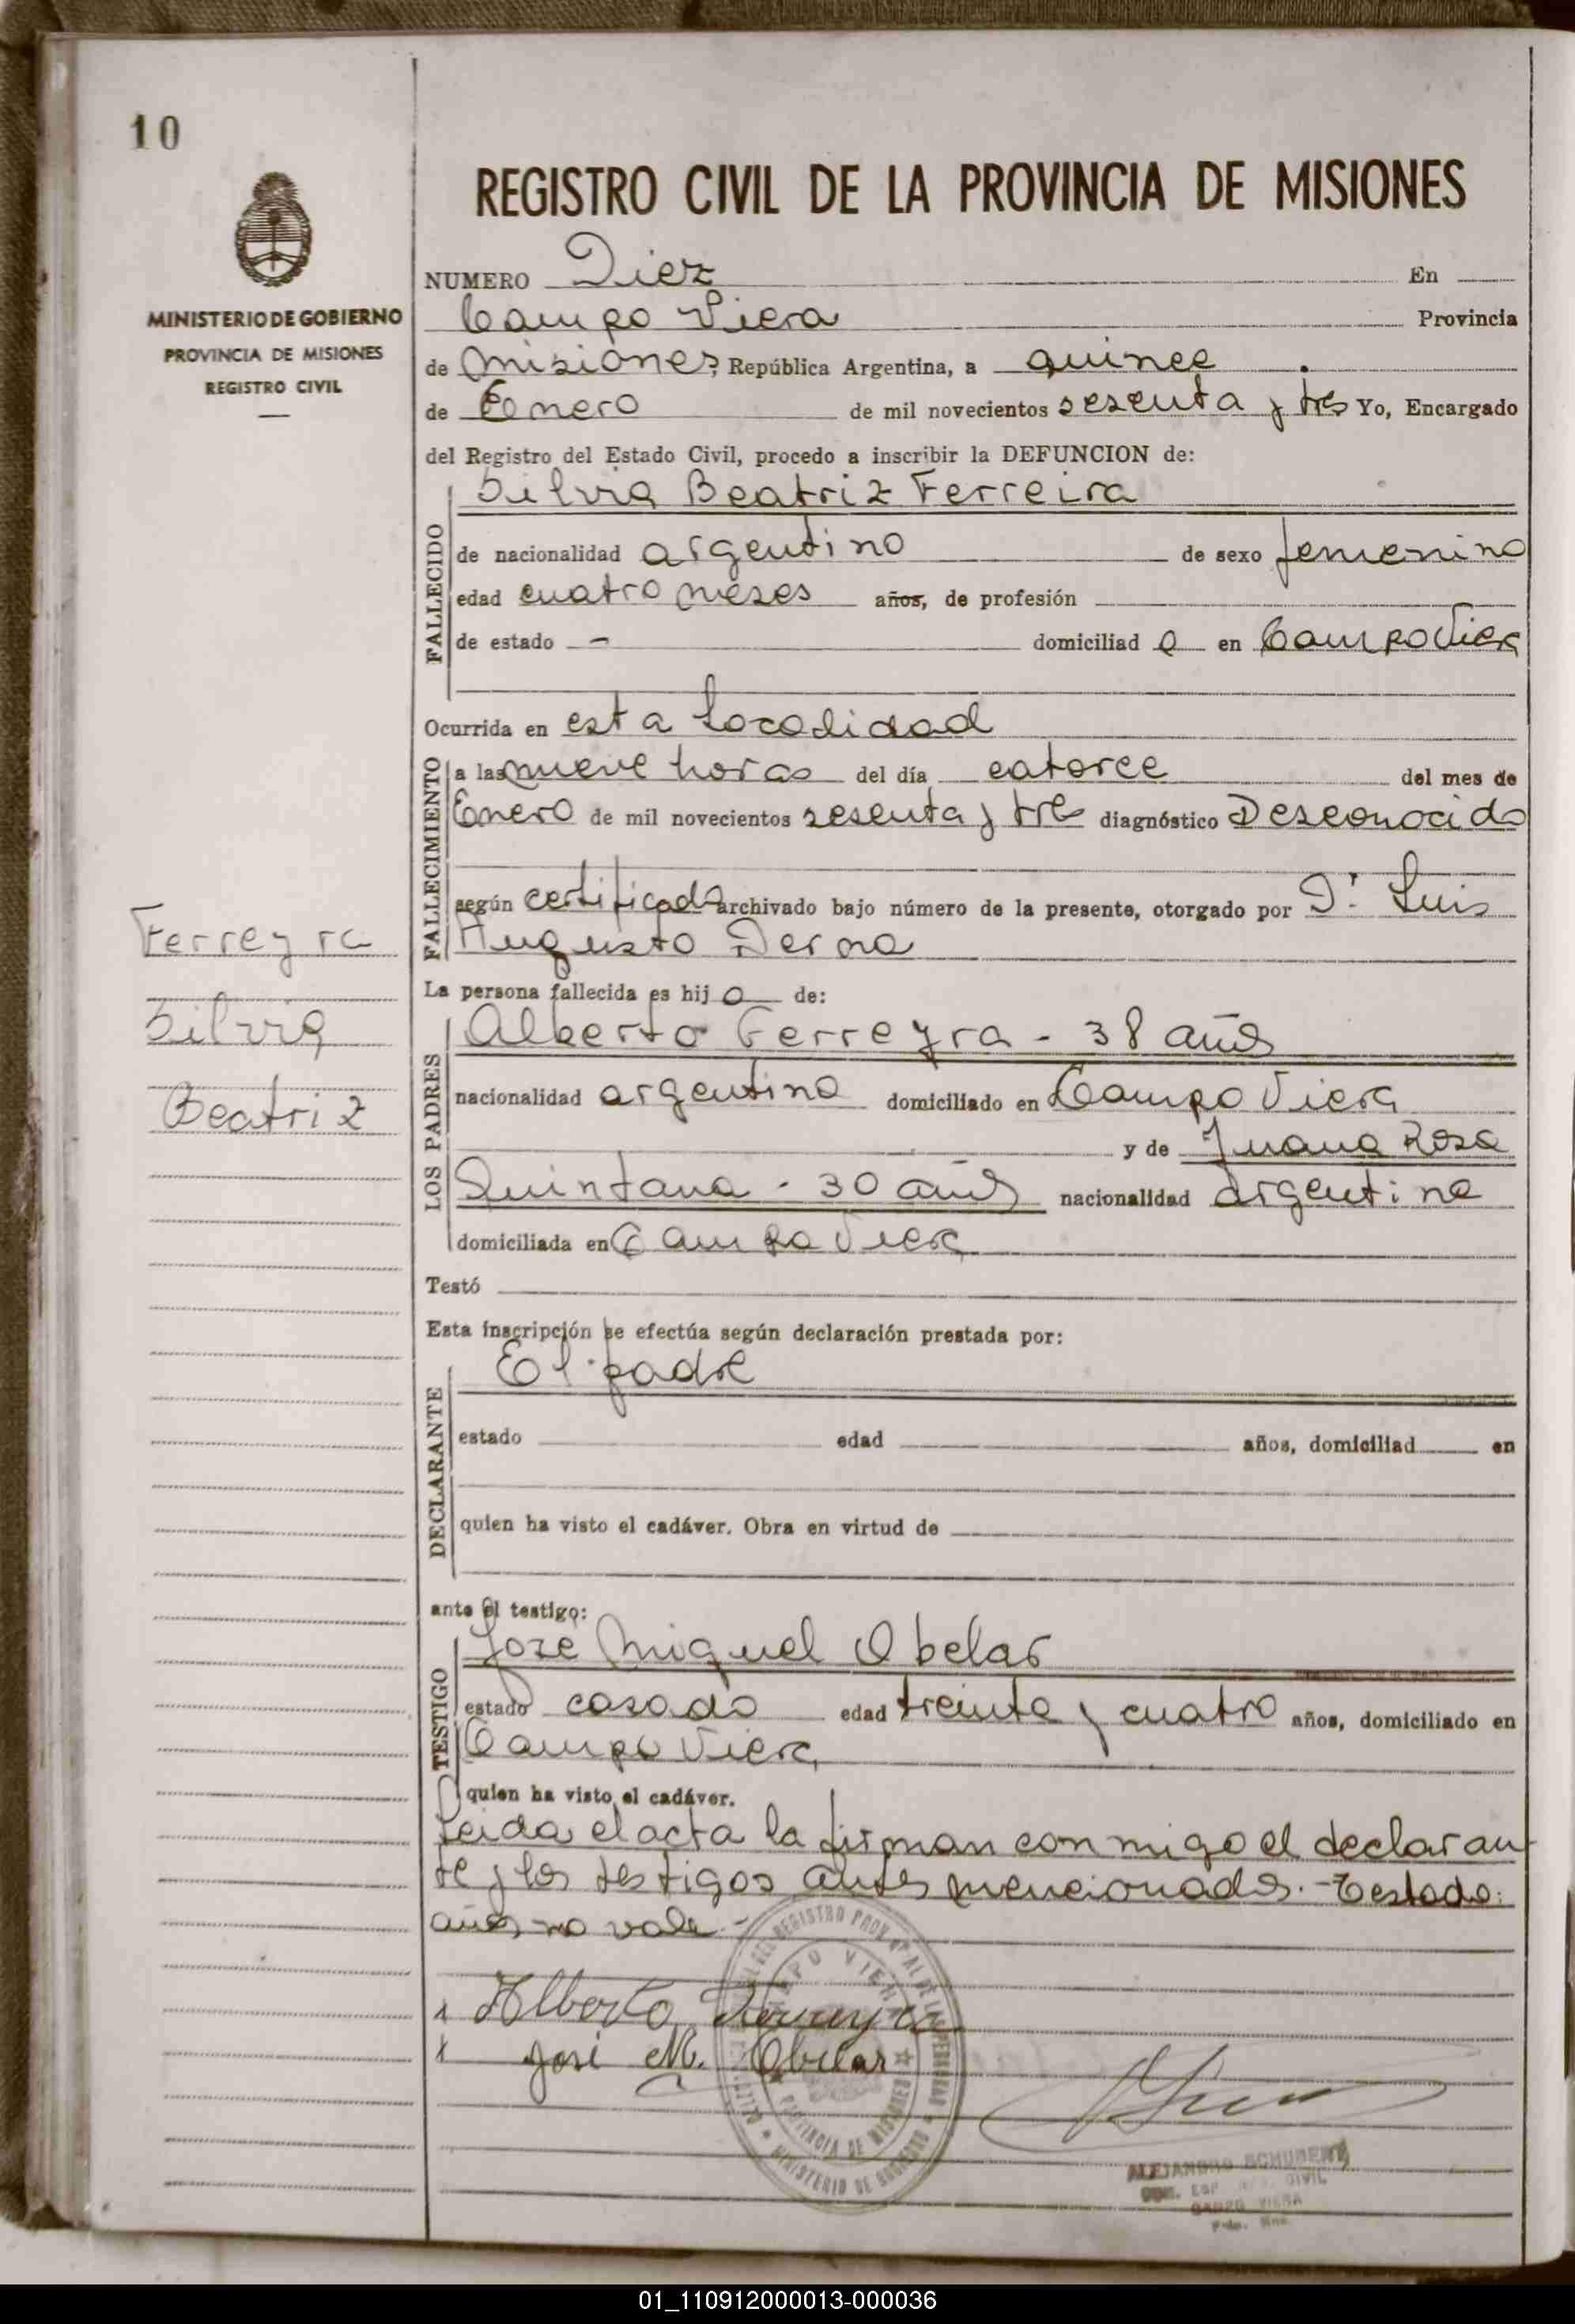 10
MINISTERIO DE GOBIERNO
PROVINCIA DE MISIONES
REGISTRO CIVIL
REGISTRO CIVIL DE LA PROVINCIA DE MISIONES
NUMERO Diez En
Campo Viera Provincia
de Misiones, República Argentina, a quince
de Enero de mil novecientos sesenta y tres Yo, Encargado
del Registro del Estado Civil, procedo a inscribir la DEFUNCION de:
Silvia Beatriz Ferreira
FALLECIDO
de nacionalidad argentino de sexo femenino
edad cuatro meses años, de profesión
de estado - domiciliad a en Campo Viera
Ocurrida en esta Localidad
FALLECIMIENTO
a las nueve horas del día catorce del mes de
Enero de mil novecientos sesenta y tres diagnóstico Desconocido
según certificado archivado bajo número de la presente, otorgado por Dr. Luis
Augusto Derna
La persona fallecida es hij a de:
LOS PADRES
Alberto Ferreyra - 38 años
nacionalidad argentina domiciliado en Campo Viera
y de Juana Rosa
Quintana - 30 años nacionalidad argentina
domiciliada en Campo Viera
Testó
Esta inscripción se efectúa según declaración prestada por:
DECLARANTE
El padre
estado edad años, domiciliad en
quien ha visto el cadáver. Obra en virtud de
ante el testigo:
TESTIGO
José Miguel Obelar
estado casado edad treinta y cuatro años, domiciliado en
Campo Viera
quien ha visto el cadáver.
Leida el acta la firman conmigo el declaran
te y los testigos antes mencionados.- Testado:
años no vale.-
x Alberto Ferreyra
x José M. Obelar
CAMPO VIERA
PROVINCIA DE MISIONES
MINISTERIO DE GOBIERNO
ALEJANDRO SCHUBERT
CIVIL
CAMPO VIERA
Ferreyra
Silvia
Beatriz
01_110912000013-000036